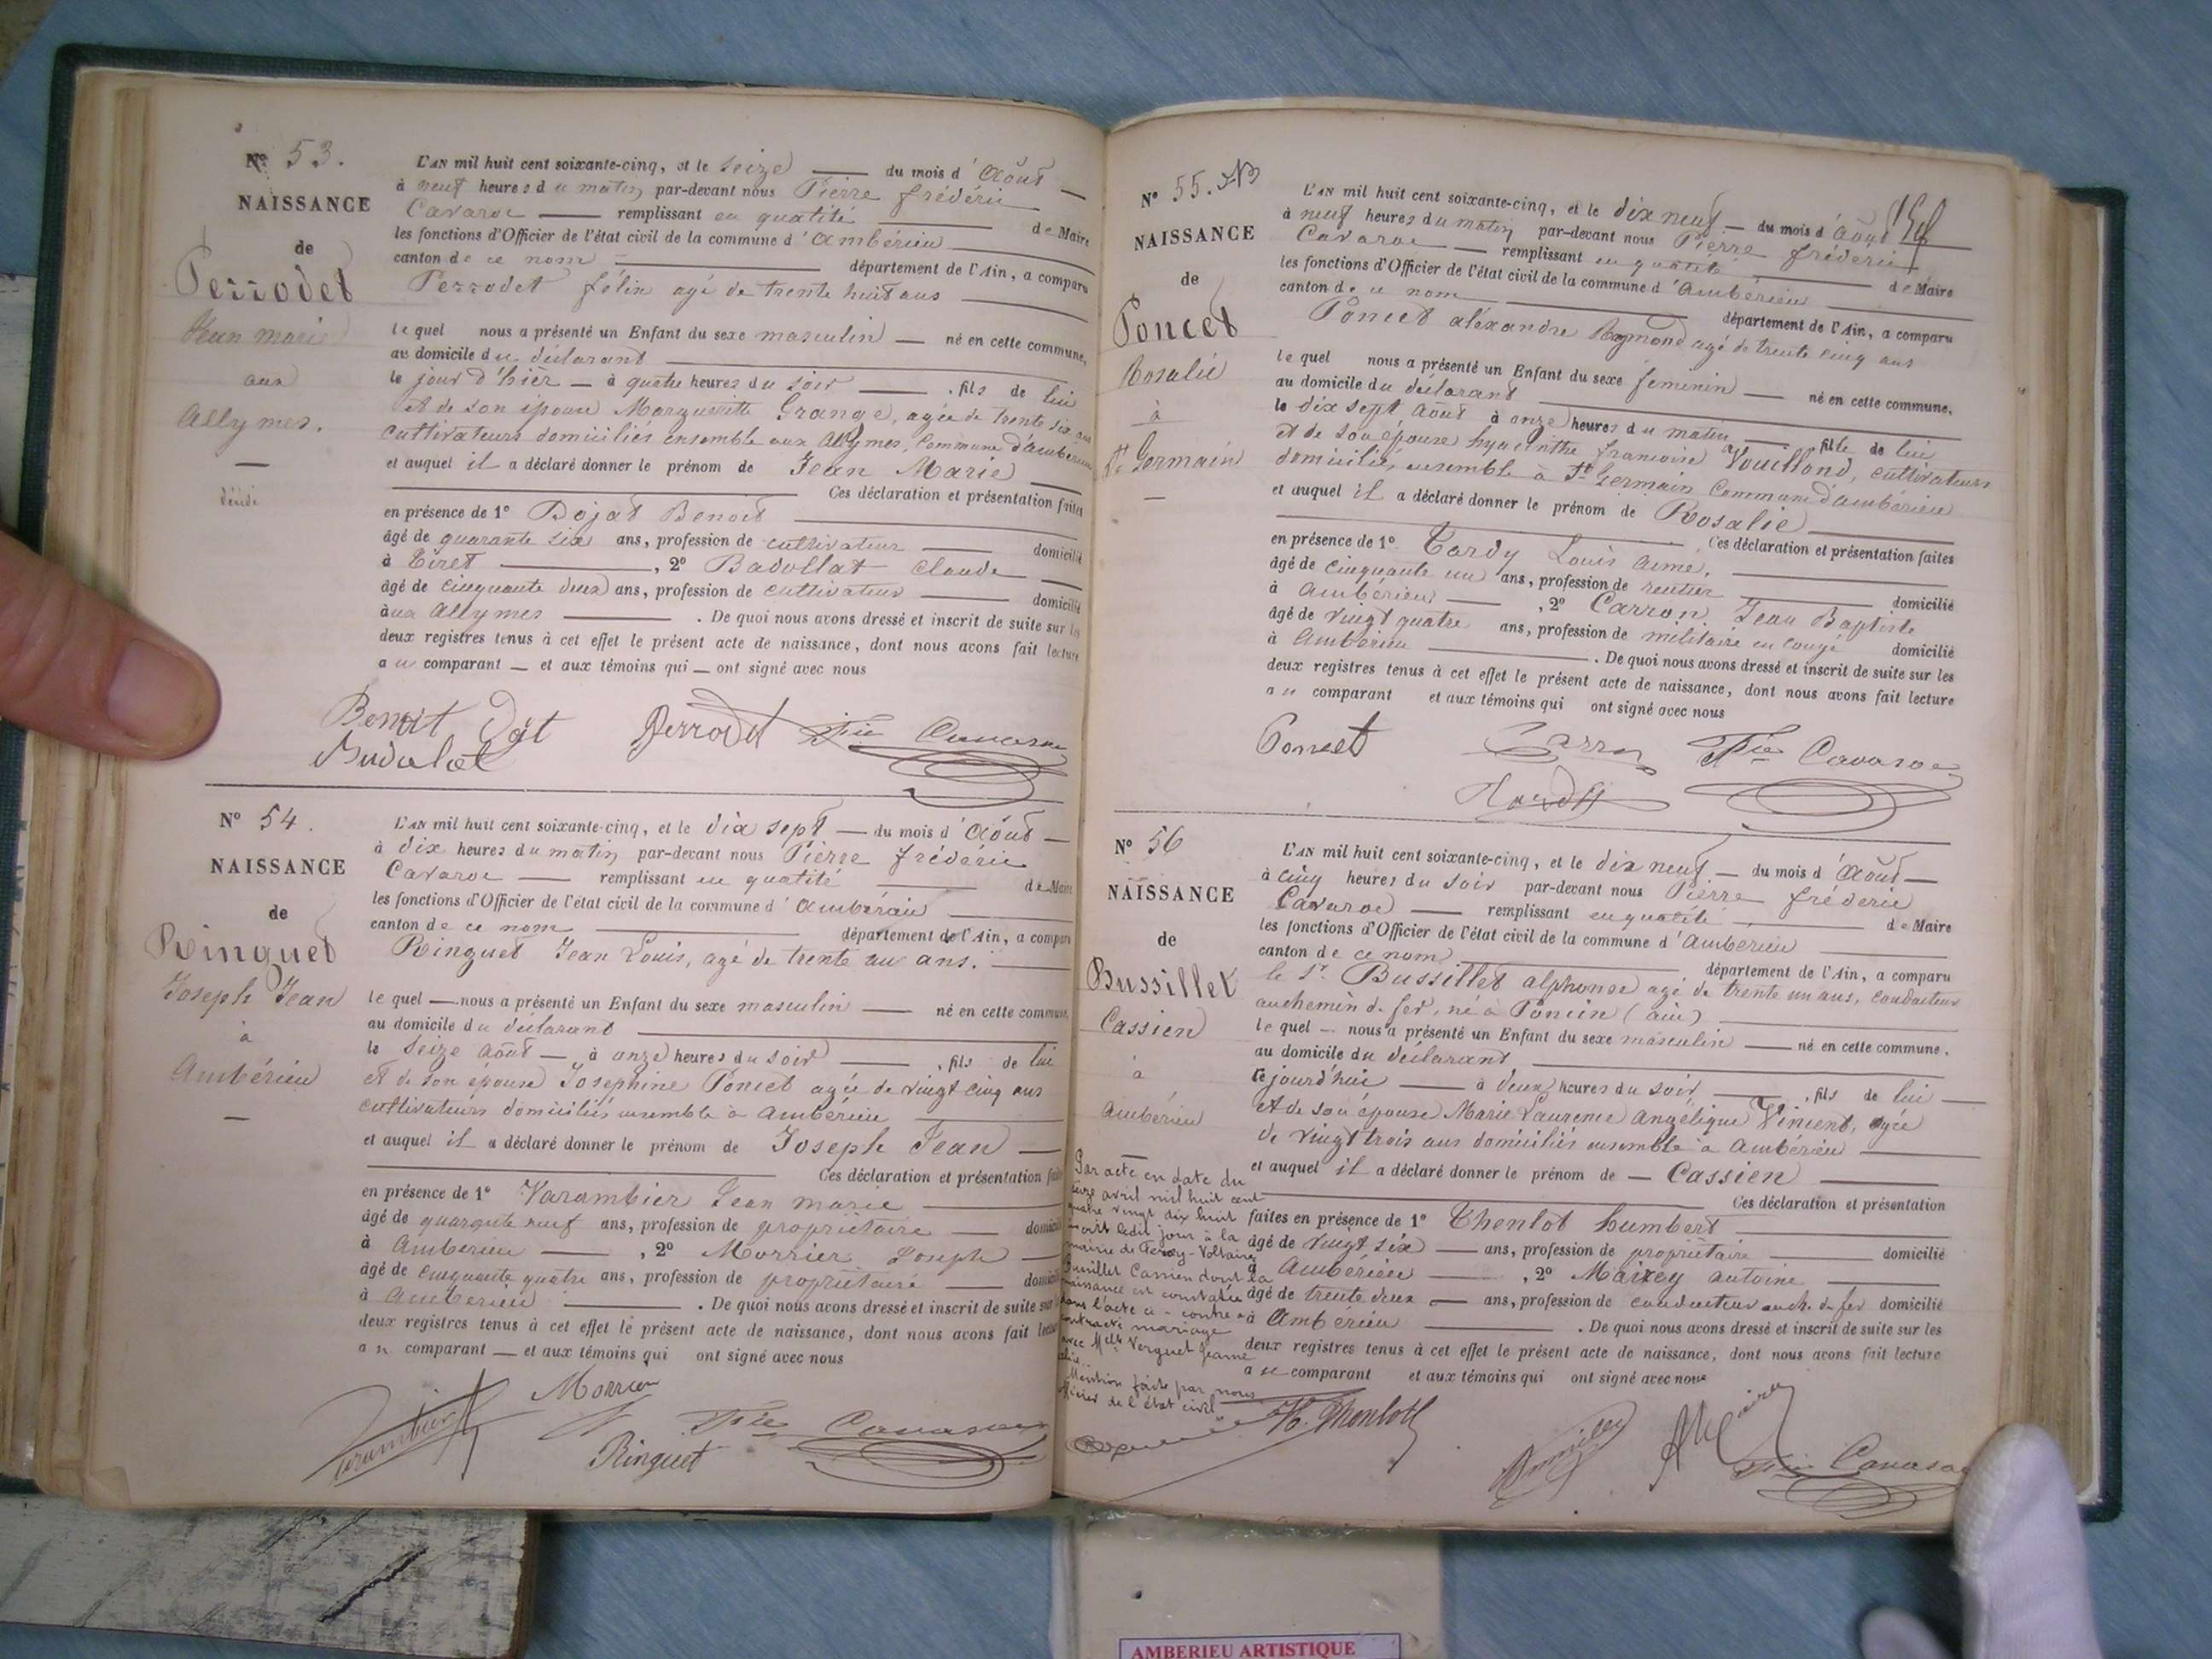 N° 53.
NAISSANCE
de
Perrodet
Jean marie
aux
Allymes.
L'AN mil huit cent soixante-cinq, et le seize du mois d'Août
à neuf heures du matin par-devant nous Pierre frédéric
Cavaroc remplissant en qualité de Maire
les fonctions d'Officier de l'état civil de la commune d'Ambérieu
canton de ce nom département de l'Ain, a comparu
Perrodet félix agé de trente huit ans
le quel nous a présenté un Enfant du sexe masculin né en cette commune,
au domicile du déclarant
le jour d'hier à quatre heures du soir , fils de lui
et de son épouse Marguerite Grange, agée de trente six ans
cultivateurs domiciliés ensemble aux Allymes, Commune d'ambérieu
et auquel il a déclaré donner le prénom de Jean Marie
Ces déclaration et présentation faites
en présence de 1° Dojat Benoit
âgé de quarante six ans, profession de cultivateur domicilié
à Tiret , 2° Badollat Claude
âgé de cinquante deux ans, profession de cultivateur domicilié
aux Allymes . De quoi nous avons dressé et inscrit de suite sur les
deux registres tenus à cet effet le présent acte de naissance, dont nous avons fait lecture
au comparant et aux témoins qui ont signé avec nous
Benoit Dojat Perrodet Fic Cavaroc
Badolat
N° 54.
NAISSANCE
de
Ringuet
Joseph Jean
à
Ambérieu
L'AN mil huit cent soixante-cinq, et le dix sept du mois d'Août
à dix heures du matin par-devant nous Pierre frédéric
Cavaroc remplissant en qualité de Maire
les fonctions d'Officier de l'état civil de la commune d'ambérieu
canton de ce nom département de l'Ain, a comparu
Ringuet Jean Louis, agé de trente un ans.
le quel nous a présenté un Enfant du sexe masculin né en cette commune,
au domicile du déclarant
le seize Août à onze heures du soir , fils de lui
et de son épouse Josephine Poncet agée de vingt cinq ans
cultivateurs domiciliés ensemble à ambérieu
et auquel il a déclaré donner le prénom de Joseph Jean
Ces déclaration et présentation faites
en présence de 1° Varambier Jean marie
âgé de quarante neuf ans, profession de propriétaire domicilié
à Ambérieu , 2° Morrier Joseph
âgé de cinquante quatre ans, profession de propriétaire domicilié
à Ambérieu . De quoi nous avons dressé et inscrit de suite sur les
deux registres tenus à cet effet le présent acte de naissance, dont nous avons fait lecture
au comparant et aux témoins qui ont signé avec nous
Morrier
Varambier Ringuet Fic Cavaroc
N° 55.
NAISSANCE
de
Poncet
Rosalie
à
St Germain
L'AN mil huit cent soixante-cinq, et le dix neuf du mois d'août
à neuf heures du matin par-devant nous Pierre frédéric
Cavaroc remplissant en qualité de Maire
les fonctions d'Officier de l'état civil de la commune d'Ambérieu
canton de ce nom département de l'Ain, a comparu
Poncet aléxandre Raymond agé de trente cinq ans
le quel nous a présenté un Enfant du sexe féminin né en cette commune,
au domicile du déclarant
le dix sept Août à onze heures du matin fille de lui
et de son épouse hyacinthe francoise Vouillond, cultivateurs
domiciliés ensemble à St Germain Commune d'ambérieu
et auquel il a déclaré donner le prénom de Rosalie
Ces déclaration et présentation faites
en présence de 1° Tardy Louis aimé.
âgé de cinquante un ans, profession de rentier domicilié
à Ambérieu , 2° Carron Jean Baptiste
âgé de vingt quatre ans, profession de militaire en congé domicilié
à Ambérieu . De quoi nous avons dressé et inscrit de suite sur les
deux registres tenus à cet effet le présent acte de naissance, dont nous avons fait lecture
au comparant et aux témoins qui ont signé avec nous
Poncet Carron Fic Cavaroc
Tardy
N° 56
NAISSANCE
de
Bussillet
Cassien
à
Ambérieu
L'AN mil huit cent soixante-cinq, et le dix neuf du mois d'Août
à cinq heures du soir par-devant nous Pierre frédéric
Cavaroc remplissant en qualité de Maire
les fonctions d'Officier de l'état civil de la commune d'Ambérieu
canton de ce nom département de l'Ain, a comparu
le Sr. Bussillet alphonse agé de trente un ans, conducteur
au chemin de fer, né à Poncin (ain)
le quel nous a présenté un Enfant du sexe masculin né en cette commune.
au domicile du déclarant
cejourd'hui à deux heures du soir , fils de lui
et de son épouse Marie Laurence Angélique Vincent, agée
de vingt trois ans domiciliés ensemble à Ambérieu
et auquel il a déclaré donner le prénom de Cassien
Ces déclaration et présentation
faites en présence de 1° Thenlot humbert
âgé de vingt six ans, profession de propriétaire domicilié
à Ambérieu , 2° Mairey antoine
âgé de trente deux ans, profession de conducteur au ch. de fer domicilié
à Ambérieu . De quoi nous avons dressé et inscrit de suite sur les
deux registres tenus à cet effet le présent acte de naissance, dont nous avons fait lecture
au comparant et aux témoins qui ont signé avec nous
Par acte en date du
seize avril mil huit cent
quatre vingt dix huit
inscrit ledit jour à la
mairie de Ferney-Voltaire
Bussillet Cassien dont la
naissance est constatée
dans l'acte ci-contre a
contracté mariage
avec Melle Verguet Jeanne
Mention faite par nous
officier de l'état civil
H. Thenlot Bussillet Fic Cavaroc
AMBERIEU ARTISTIQUE